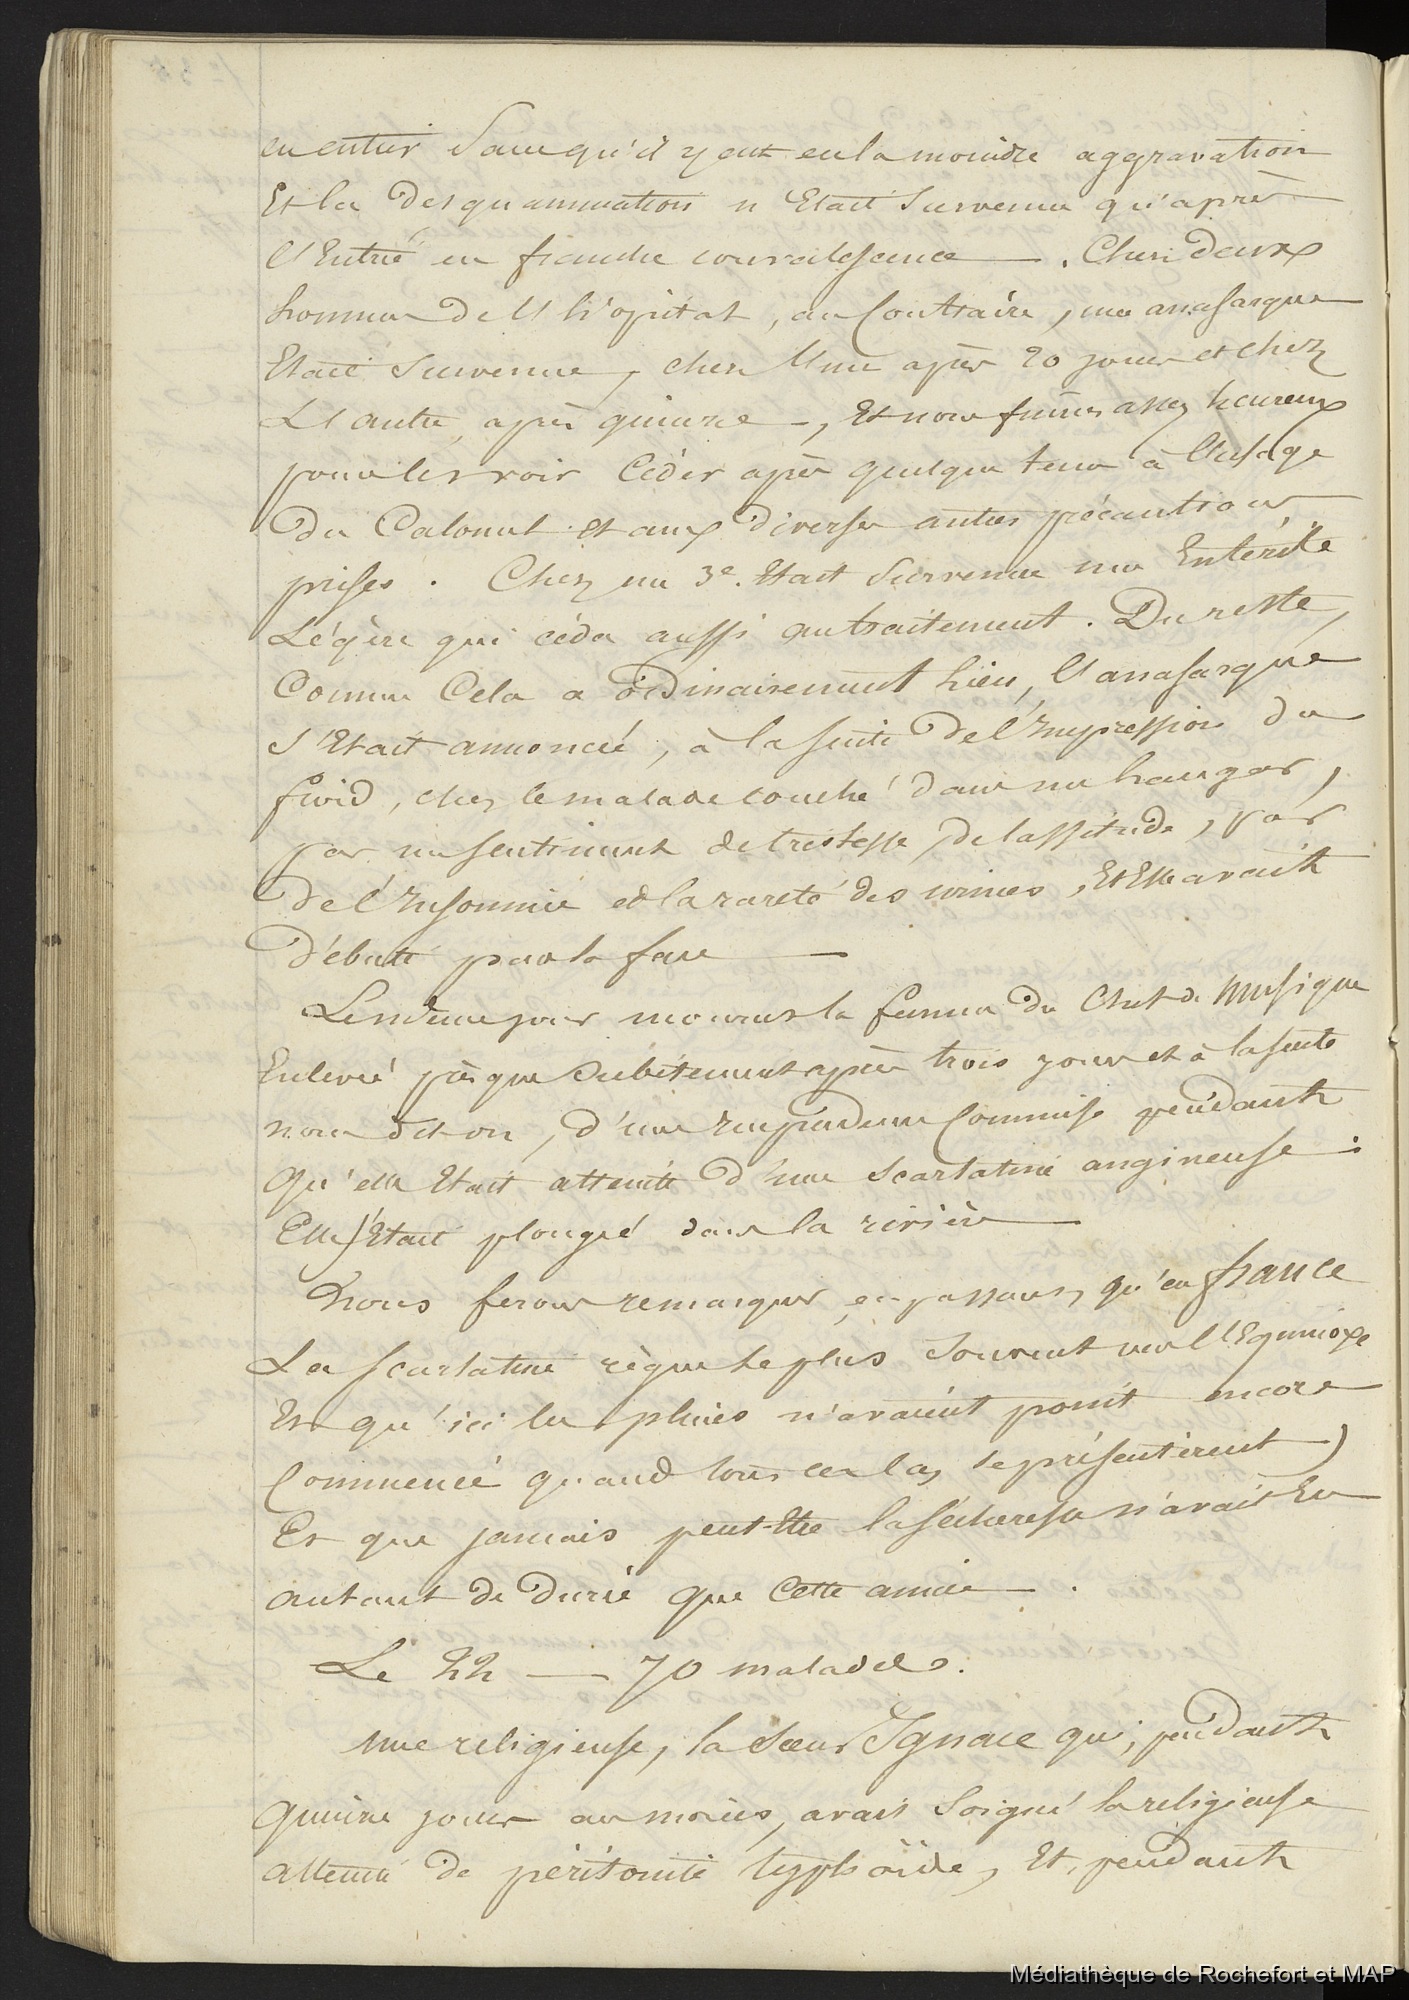 en entier sans qu'il y eut eu la moindre aggravation
Et la desquammation n'Etait survenue qu'après
l'Entrée en franche convalescence —. Chez deux
hommes de l'hôpital, au Contraire, une anasarque
Etait survenue, chez l'une après 20 jours et chez
L'autre, après quinze —, Et nous fûmes assez heureux
pour les voir Céder après quelque tems à l'usage
Du Calomel et aux diverses autres précautions
prises. Chez un 3e. Etait survenue une Entérite
Légère qui céda aussi au traitement. Du reste,
Comme Cela a ordinairement lieu, l'anasarque
s'Etait annoncée, à la suite de l'Impression du
froid, chez le malade couché dans un hangar,
par un sentiment de tristesse, de lassitude, par
de l'Insomnie et la rareté des urines, Et Elle avait
Débuté par la face —
Le même jour mourut la femme du Chef de Musique
Enlevée presque subitement après trois jours et à la suite
nous dit-on, d'une Imprudence Commise pendant
qu'elle Etait atteinte d'une scarlatine angineuse.
Elle s'Etait plongée dans la rivière —
Nous ferons remarquer, en passant, qu'en france
La scarlatine règne le plus souvent vers l'Equinoxe
Et qu'ici les pluies n'avaient point encore
Commencé quand tous ces cas se présentèrent,
Et que jamais peut-Etre la sécheresse n'avait Eu
autant de Durée que cette année —.
Le 22 — 70 malades.
une religieuse, la soeur Ignace qui, pendant
Quinze jours au moins, avait soigné la religieuse
atteinte de péritonite typhoïde, Et, pendant
Médiathèque de Rochefort et MAP